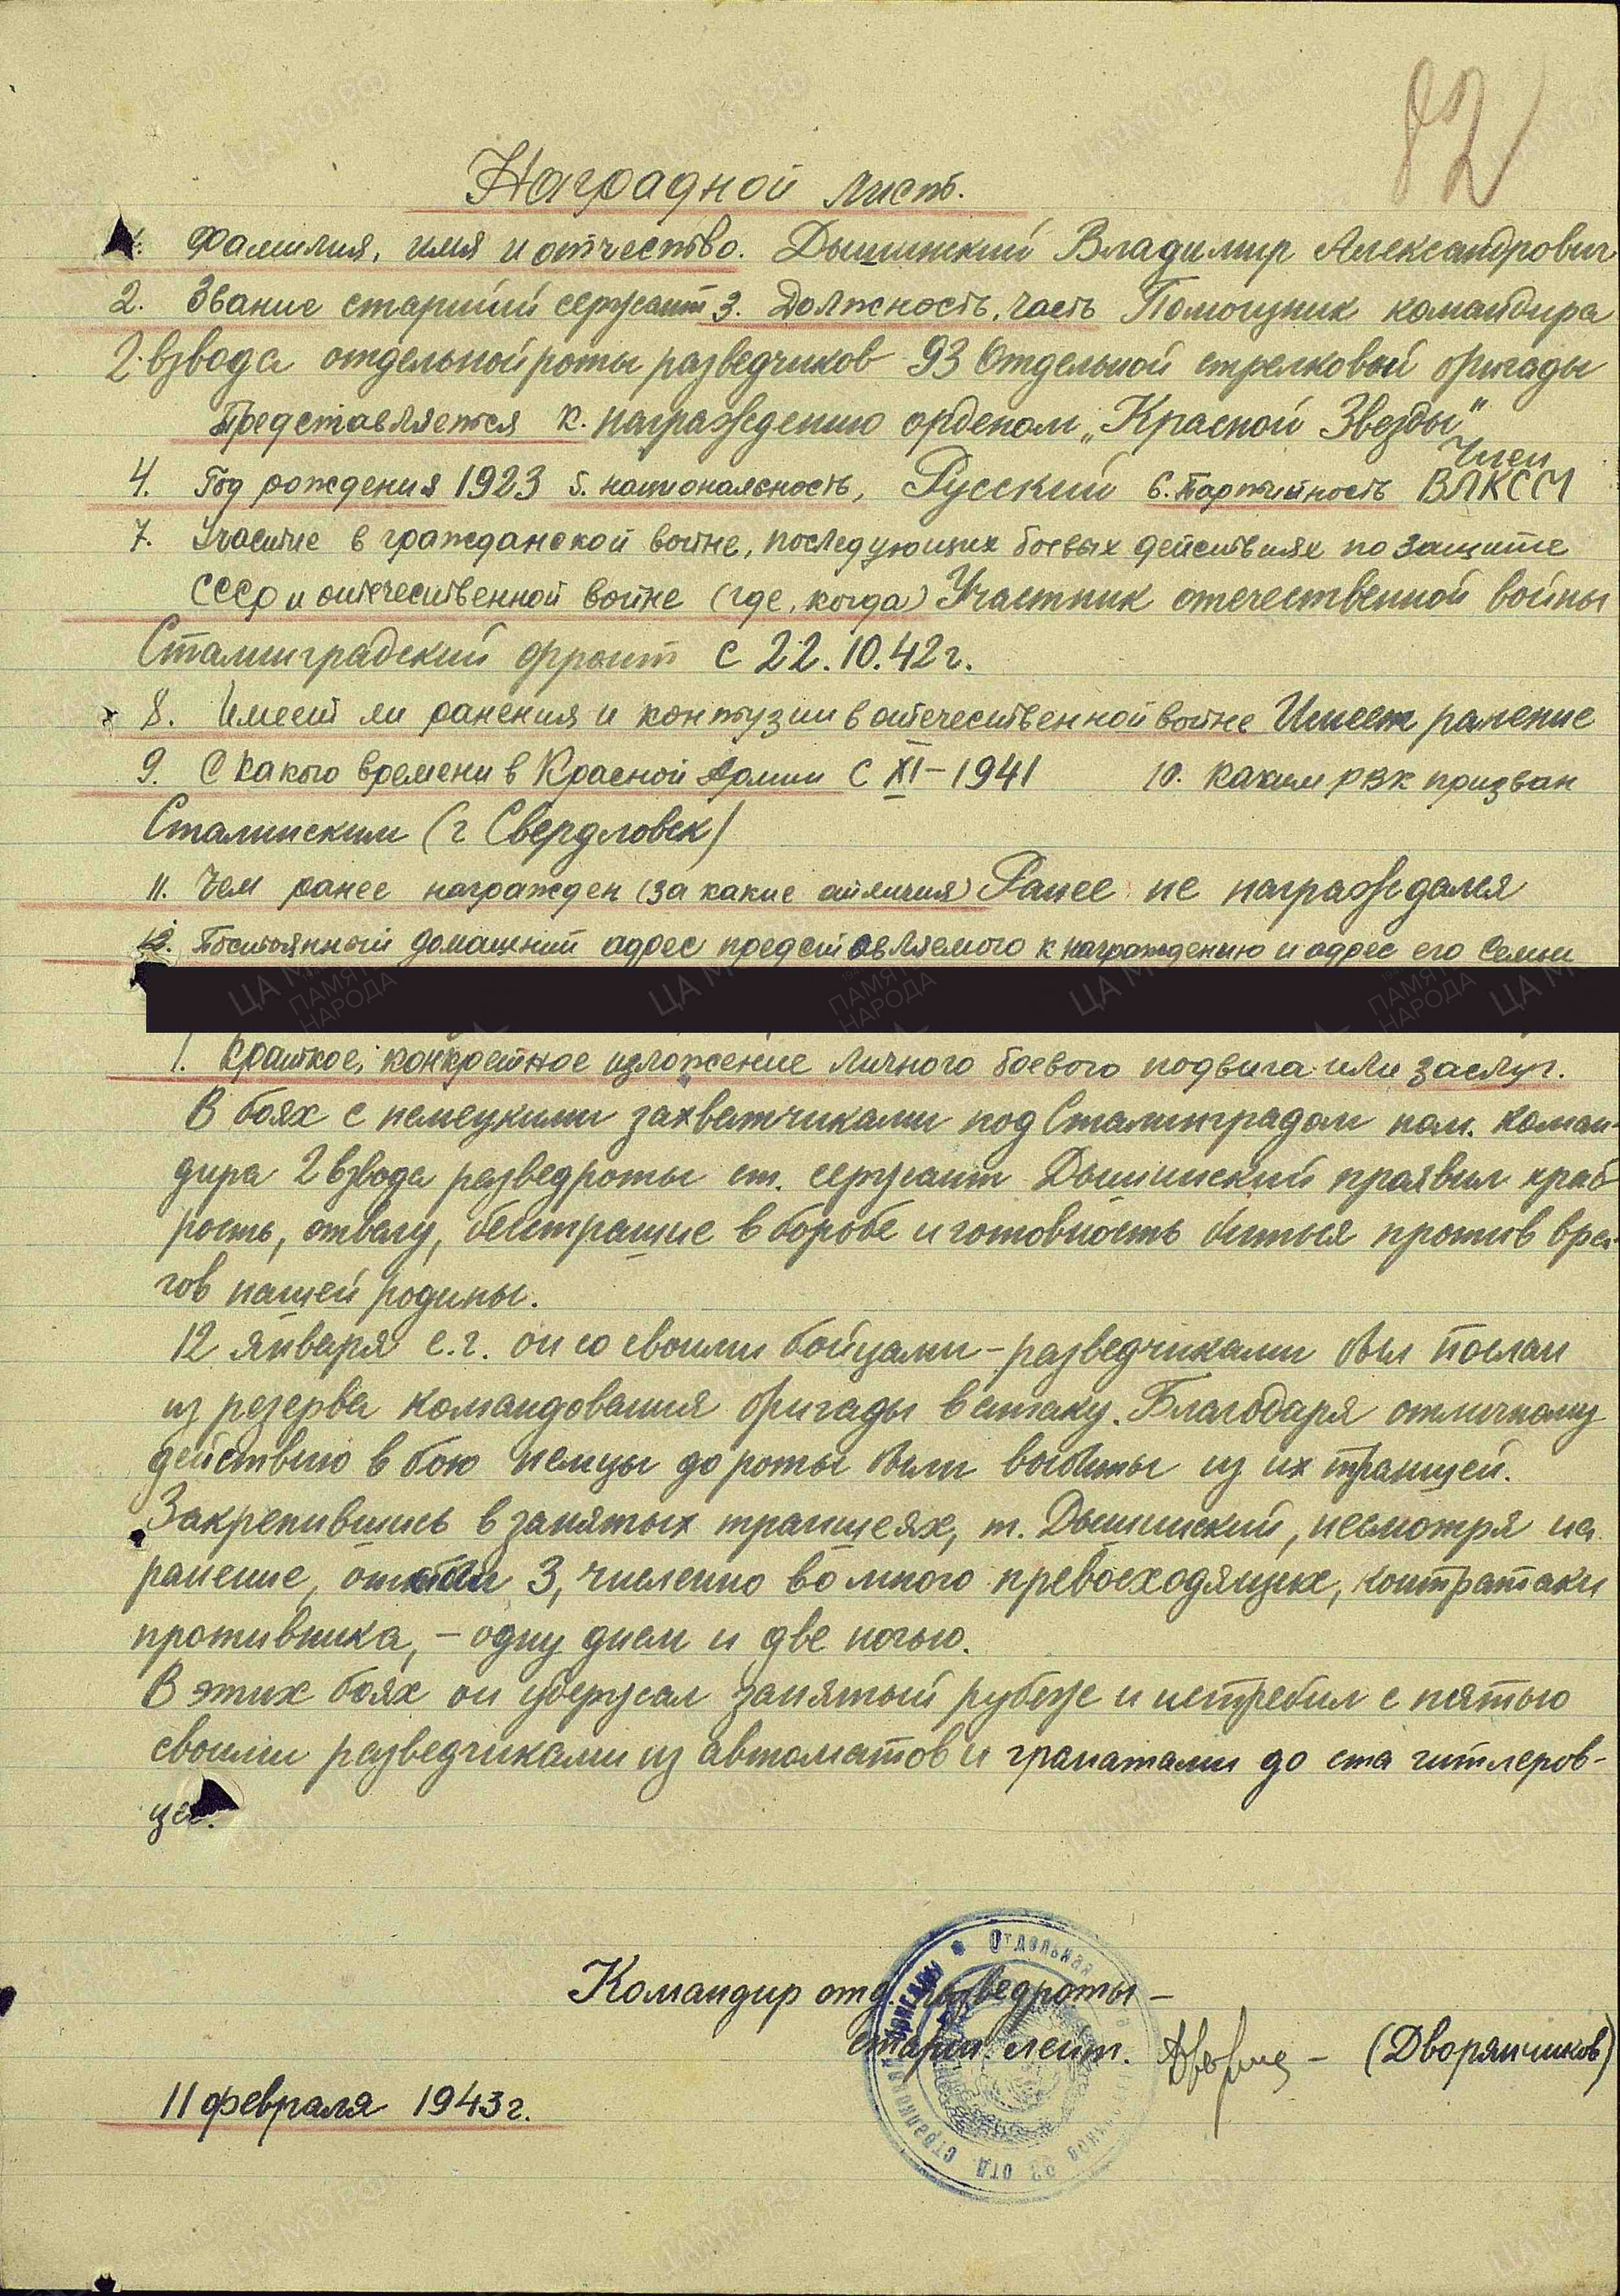 82
Наградной лист.
1. Фамилия, имя и отчество. Дышинский Владимир Александрович
2. Звание старший сержант 3. Должность, часть Помощник командира
2 взвода отдельной роты разведчиков 93 Отдельной стрелковой бригады
Представляется к. награждению орденом „Красной Звезды"
Член
4. Год рождения 1923 5. национальность, Русский 6. Партийность ВЛКСМ
7. Участие в гражданской войне, последующих боевых действиях по защите
СССР и отечественной войне (где, когда) Участник отечественной войны
Сталинградский фронт с 22.10.42г.
8. Имеет ли ранения и контузии в отечественной войне Имеет ранение
9. С какого времени в Красной Армии с XI-1941 10. каким рвк призван
Сталинским (г Свердловск)
11. Чем ранее награжден (за какие отличия) Ранее не награждался
12. Постоянный домашний адрес представляемого к награждению и адрес его семьи
1. Краткое, конкретное изложение личного боевого подвига или заслуг.
В боях с немецкими захватчиками под Сталинградом пом. коман-
дира 2 взвода разведроты ст. сержант Дышинский проявил храб
рость, отвагу, бесстрашие в боробе и готовность биться против вра-
гов нашей родины.
12 января с.г. он со своими бойцами-разведчиками был послан
из резерва командования бригады в атаку. Благодаря отличному
действию в бою немцы до роты были выбиты из их траншей.
Закрепившись в занятых траншеях, т. Дышинский, несмотря на
ранение, отбил 3, численно во много превосходящих, контратаки
противника, - одну днем и две ночью.
В этих боях он удержал занятый рубеж и истребил с пятью
своими разведчиками из автоматов и гранатами до ста гитлеров-
цев.
Командир отд. разведроты -
старш. лейт. (Дворянчиков)
11 февраля 1943г.
Отдельная
93 отд. стрелковой бригады
ЦАМО.РФ
ПАМЯТЬ
НАРОДА